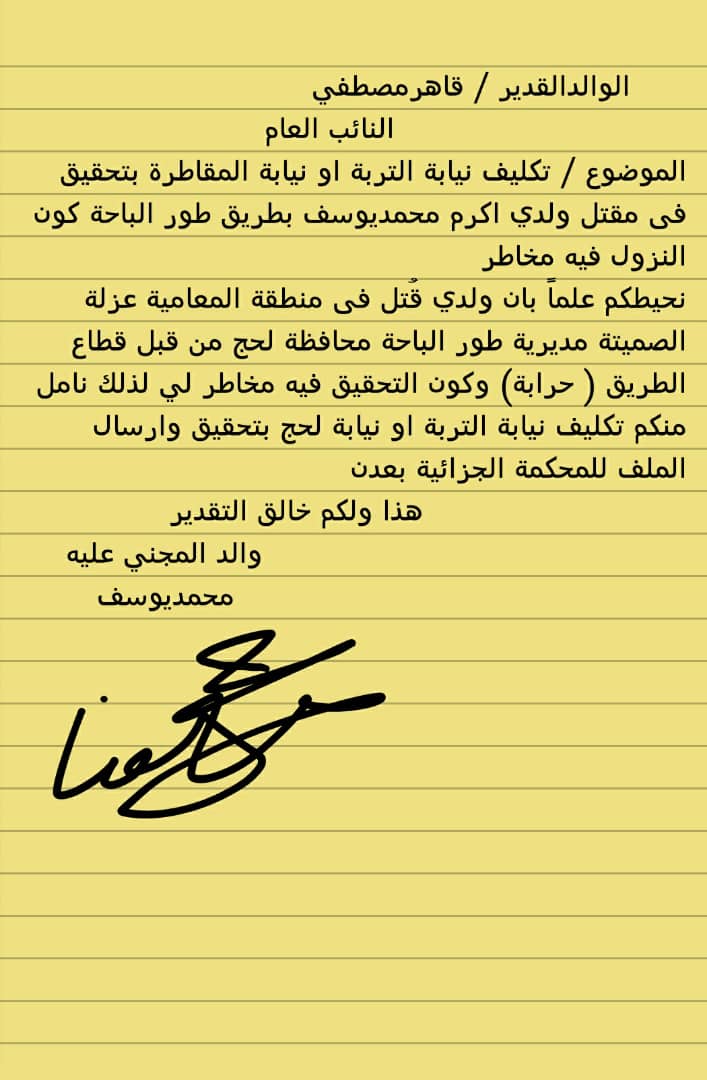 الوالدالقدير / قاهرمصطفي
النائب العام
الموضوع / تكليف نيابة التربة او نيابة المقاطرة بتحقيق
فى مقتل ولدي اكرم محمديوسف بطريق طور الباحة كون
النزول فيه مخاطر
نحيطكم علماً بان ولدي قُتل فى منطقة المعامية عزلة
الصميتة مديرية طور الباحة محافظة لحج من قبل قطاع
الطريق ( حرابة) وكون التحقيق فيه مخاطر لي لذلك نامل
منكم تكليف نيابة التربة او نيابة لحج بتحقيق وارسال
الملف للمحكمة الجزائية بعدن
هذا ولكم خالق التقدير
والد المجني عليه
محمديوسف